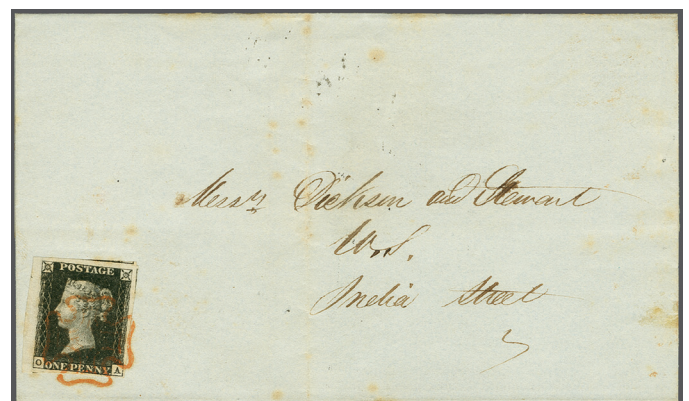 Messrs Dickson and Stewart
W.S.
India Street
POSTAGE
O ONE PENNY A